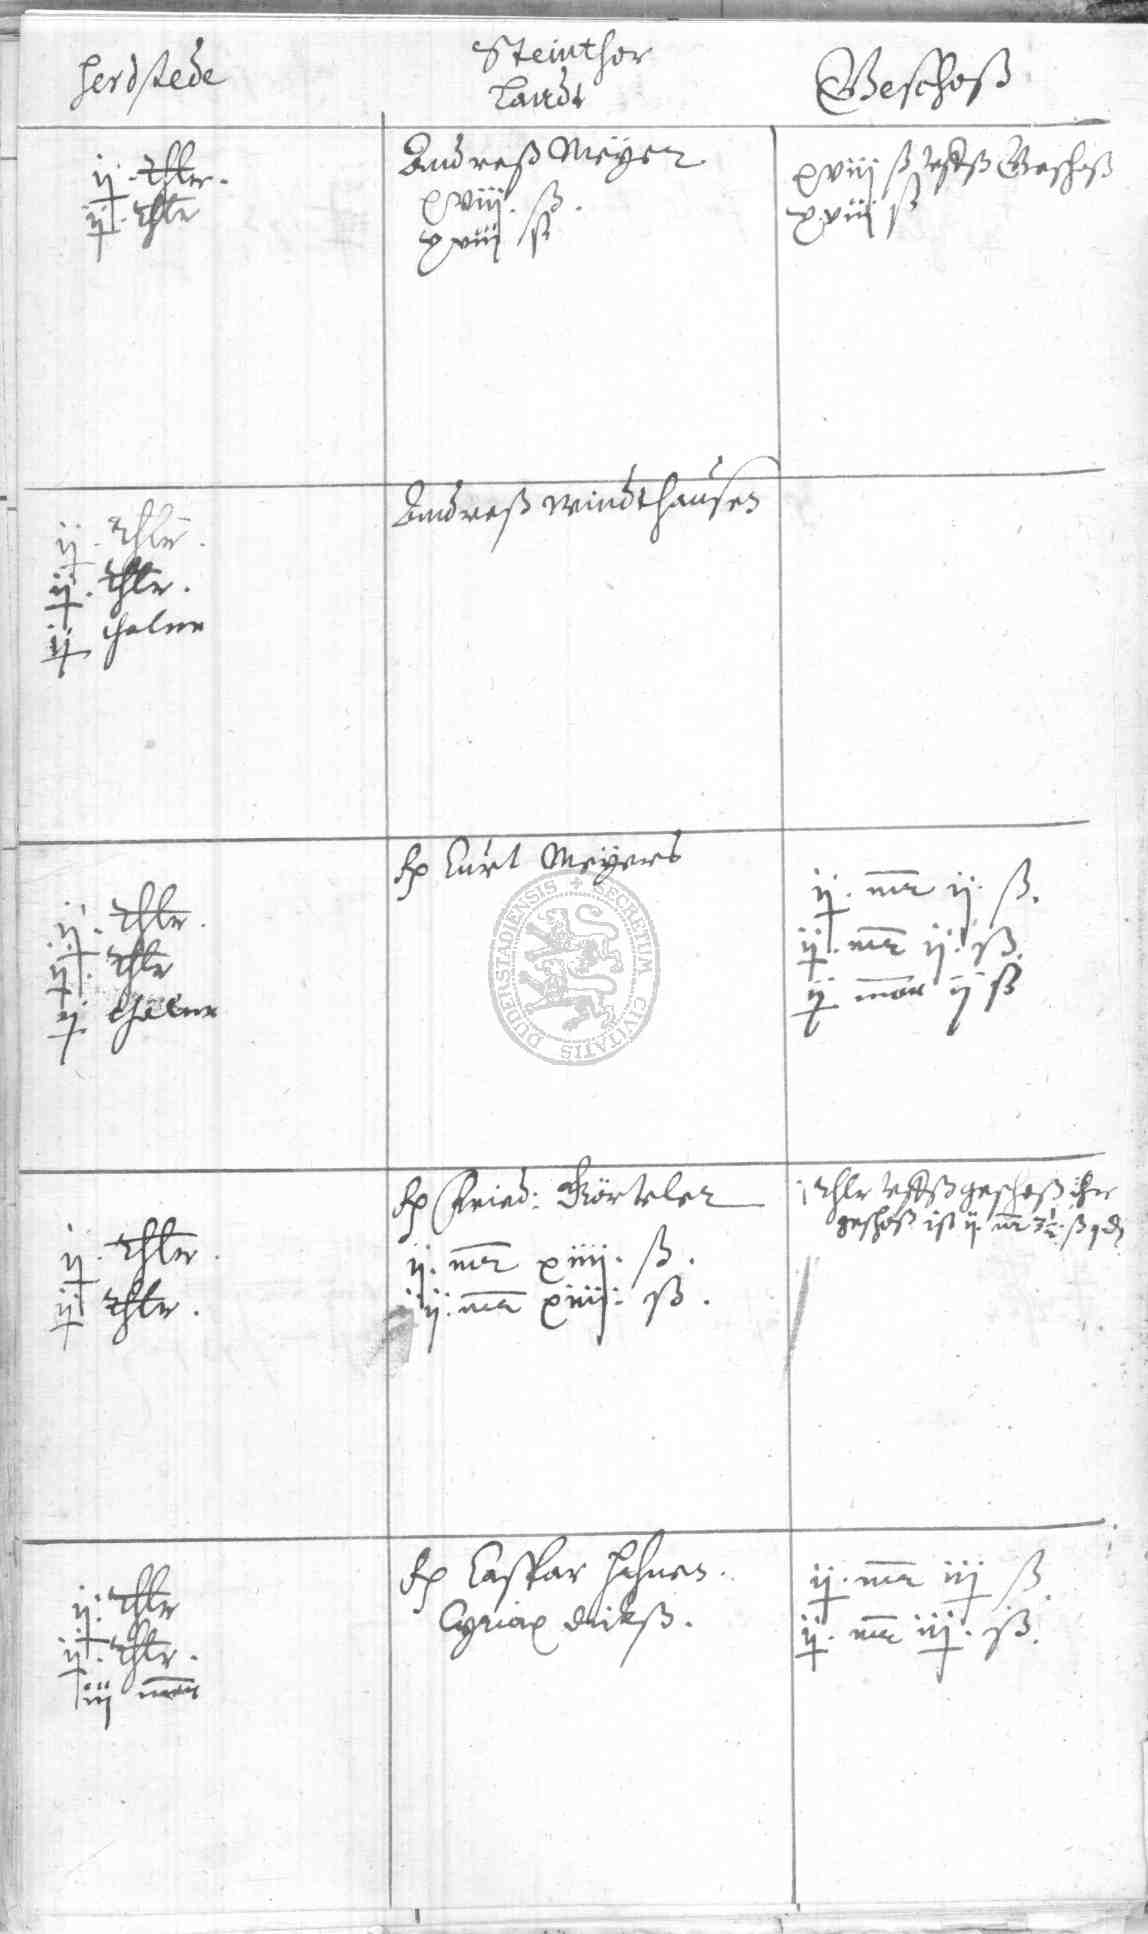 Herdstede
Steinthor
Landt
Geschoß
ij. thlr.
ij. thlr
Andreß Meÿer
xviij. ß.
xviij ß
xviij ß Geschoß
xviij ß
ij. thlr.
ij. thlr.
ij thaler
Andreß Windthausen
ij. thlr.
ij. thlr
ij. thaler
Rp Curt Meÿers
ij. mr ij. ß.
ij. mr ij. ß.
ij mar ij ß
ij. thlr.
ij thlr.
Rp Fried: Körteler
ij. mr xiiij. ß.
ij. mr xiiij. ß.
j thlr geschoß ihr
geschoß ist ij mr ß
ij. thlr
ij. thlr.
iij mar
Rp Caspar Hahnen.
Cyriax
ij. mr iij ß
ij. mr iij. ß.
DUDERSTADIENSIS + SECRETUM CIVITATIS